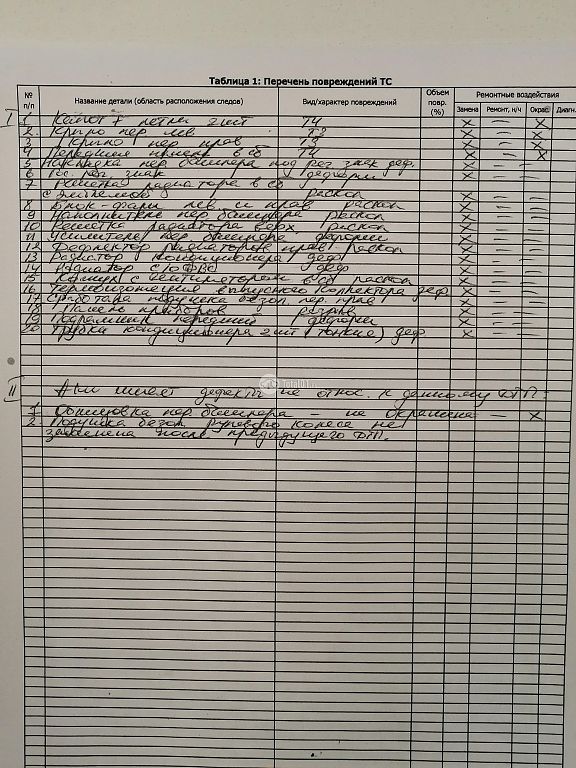 Таблица 1: Перечень повреждений ТС
№ п/п Название детали (область расположения следов) Вид/характер повреждений Объем повр. (%) Ремонтные воздействия
Замена Ремонт, н/ч Окрас. Диагн.
I 1 Капот + петли 2шт Т4 X — X
2 Крыло пер лев X — X
3 Крыло пер прав X — X
4 Передняя в сб Т4 X — X
5 Накладка пер бампера под рег знак деф. X — —
6 Гос. рег. знак деформ X — —
7 Решетка радиатора в сб
с эмблемой раскол X — —
8 Блок-фары лев и прав раскол X — —
9 Наполнитель пер бампера раскол X — —
10 Решетка радиатора верх. раскол X — —
11 Усилитель пер бампера деформ X — —
12 Дефлектор радиаторов прав раскол X — —
13 кондиционера деф X — —
14 Радиатор С/О ДВС деф X — —
15 Кожух с вентилятором в сб раскол X — —
16 Термоизоляция выпускного коллектора деф X — —
17 Сработала подушка безоп. пер. прав X — —
18 Панель приборов разрыв X — —
19 Подрамник передний деформ X — —
20 Трубки кондиционера 2шт (тонкие) деф X — —
II А/м имеет дефекты не относ. к данному ДТП:
1 Облицовка пер бампера — не окрашена — X
2 Подушка безоп рулевого колеса не
заменена после предыдущего ДТП.